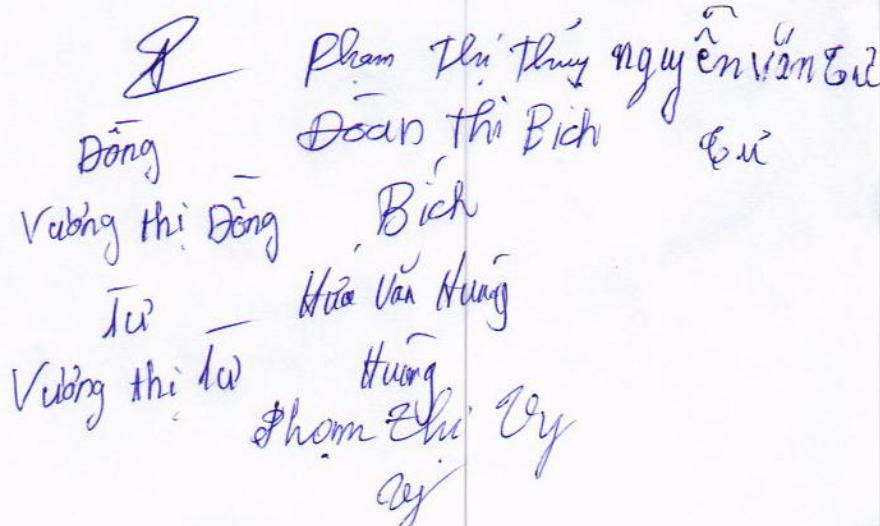 Phạm Thị Thúy nguyễn văn Tư
Đồng Đoàn thi Bich Tư
Vương thị Đồng Bích
Tư Hứa Văn Hưng
Vương thị Tư Hưng
Phạm Thị Vy
Vy